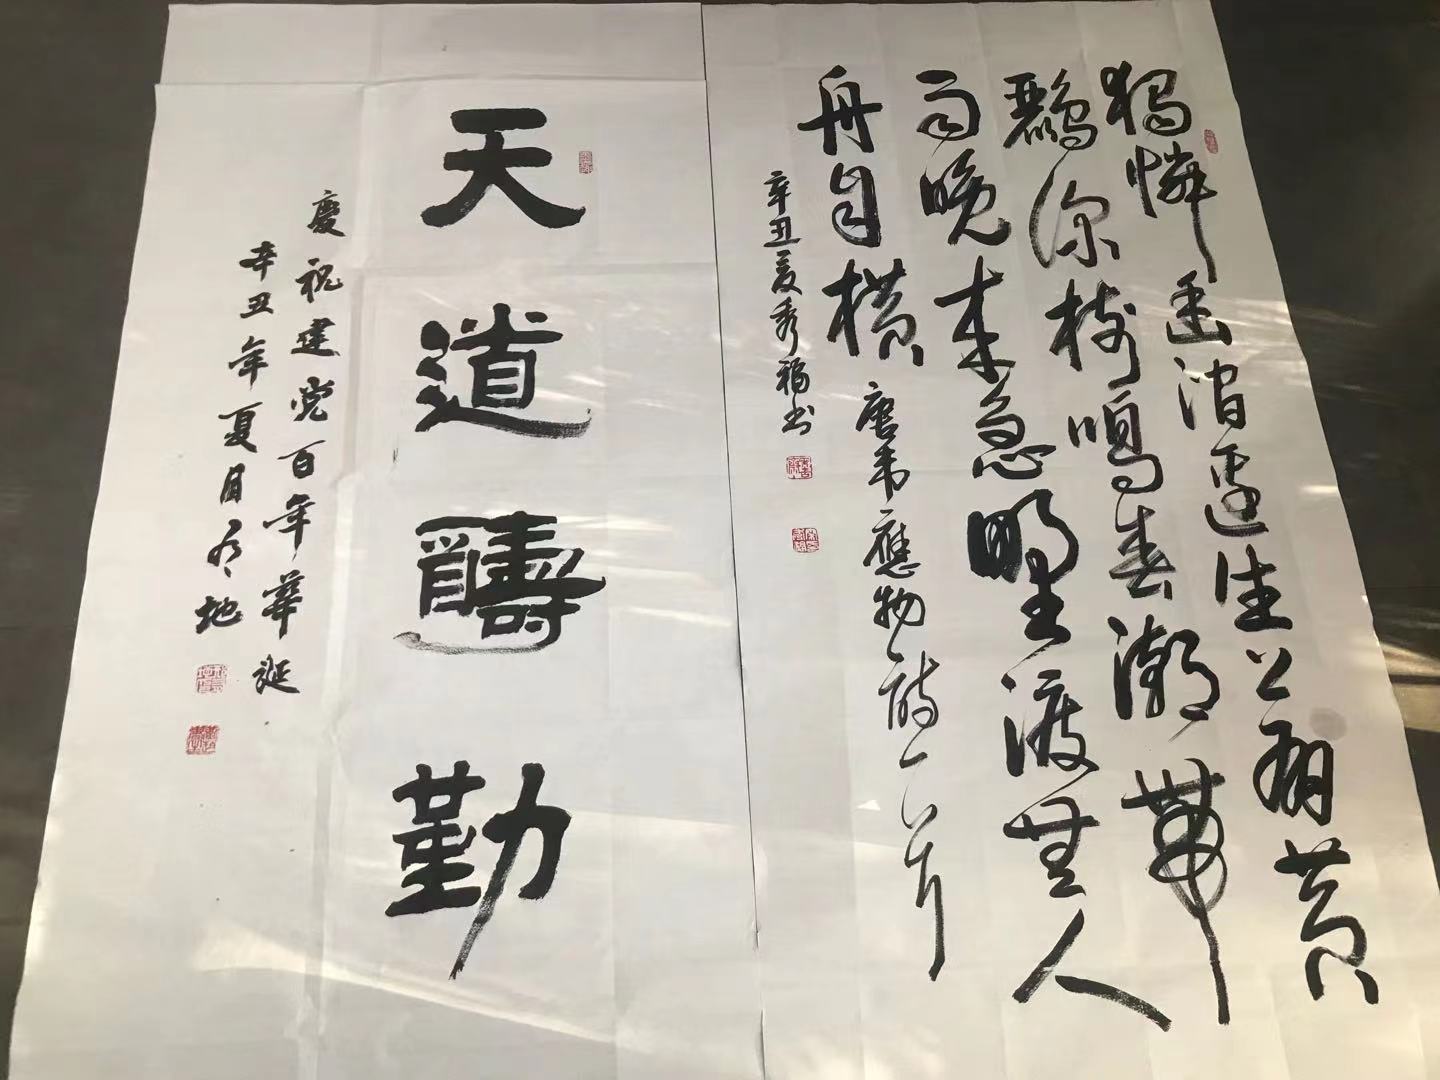 獨憐幽澗邊生上有黃
鸝深樹鳴春潮帶
雨晚來急野渡無人
舟自橫 唐韋應物詩一首
辛丑夏秀福书
天道醻勤
慶祝建党百年華诞
辛丑年夏月地